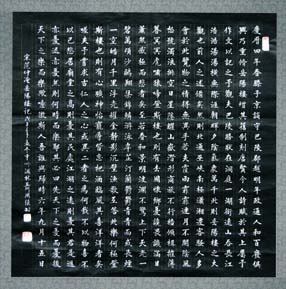 慶曆四年春滕子京謫守巴陵郡越明年政通人和百廢俱
興乃重修岳陽樓增其舊制刻唐賢今人詩賦於其上屬予
作文以記之予觀夫巴陵勝狀在洞庭一湖銜遠山吞長江
浩浩湯湯橫無際涯朝暉夕陰氣象萬千此則岳陽樓之大
觀也前人之述備矣然則北通巫峽南極瀟湘遷客騷人多
會於此覽物之情得無異乎若夫霪雨霏霏連月不開陰風
怒號濁浪排空日星隱耀山岳潛形商旅不行檣傾楫摧薄
暮冥冥虎嘯猿啼登斯樓也則有去國懷鄉憂讒畏譏滿目
蕭然感極而悲者矣至若春和景明波瀾不驚上下天光一
碧萬頃沙鷗翔集錦鱗游泳岸芷汀蘭郁郁青青而或長煙
一空皓月千里浮光躍金靜影沉璧漁歌互答此樂何極登
斯樓也則有心曠神怡寵辱皆忘把酒臨風其喜洋洋者矣
嗟夫予嘗求古仁人之心或異二者之為何哉不以物喜不
以己悲居廟堂之高則憂其民處江湖之遠則憂其君是進
亦憂退亦憂然則何時而樂耶其必曰先天下之憂而憂後
天下之樂而樂歟噫微斯人吾誰與歸時六年九月十五日
宋范仲淹岳陽樓記